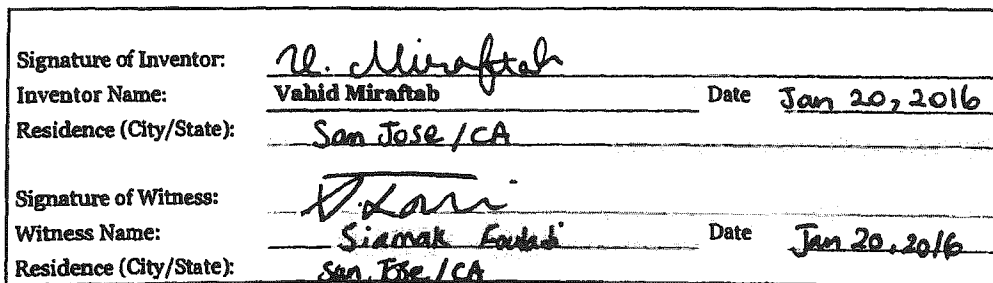 Signature of Inventor: V. Miraftab
Inventor Name: Vahid Miraftab Date Jan 20, 2016
Residence (City/State): San Jose / CA
Signature of Witness:
Witness Name: Siamak Fouladi Date Jan 20, 2016
Residence (City/State): San Jose / CA